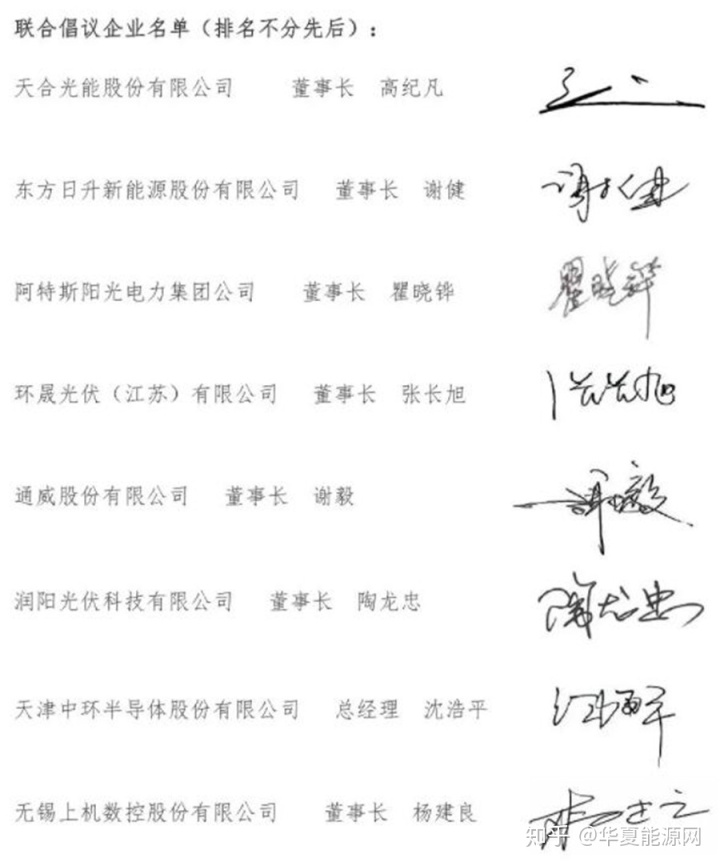 联合倡议企业名单（排名不分先后）：
天合光能股份有限公司 董事长 高纪凡
东方日升新能源股份有限公司 董事长 谢健
阿特斯阳光电力集团公司 董事长 瞿晓铧 瞿晓铧
环晟光伏（江苏）有限公司 董事长 张长旭
通威股份有限公司 董事长 谢毅
润阳光伏科技有限公司 董事长 陶龙忠 陶龙忠
天津中环半导体股份有限公司 总经理 沈浩平
无锡上机数控股份有限公司 董事长 杨建良
知乎 @华夏能源网